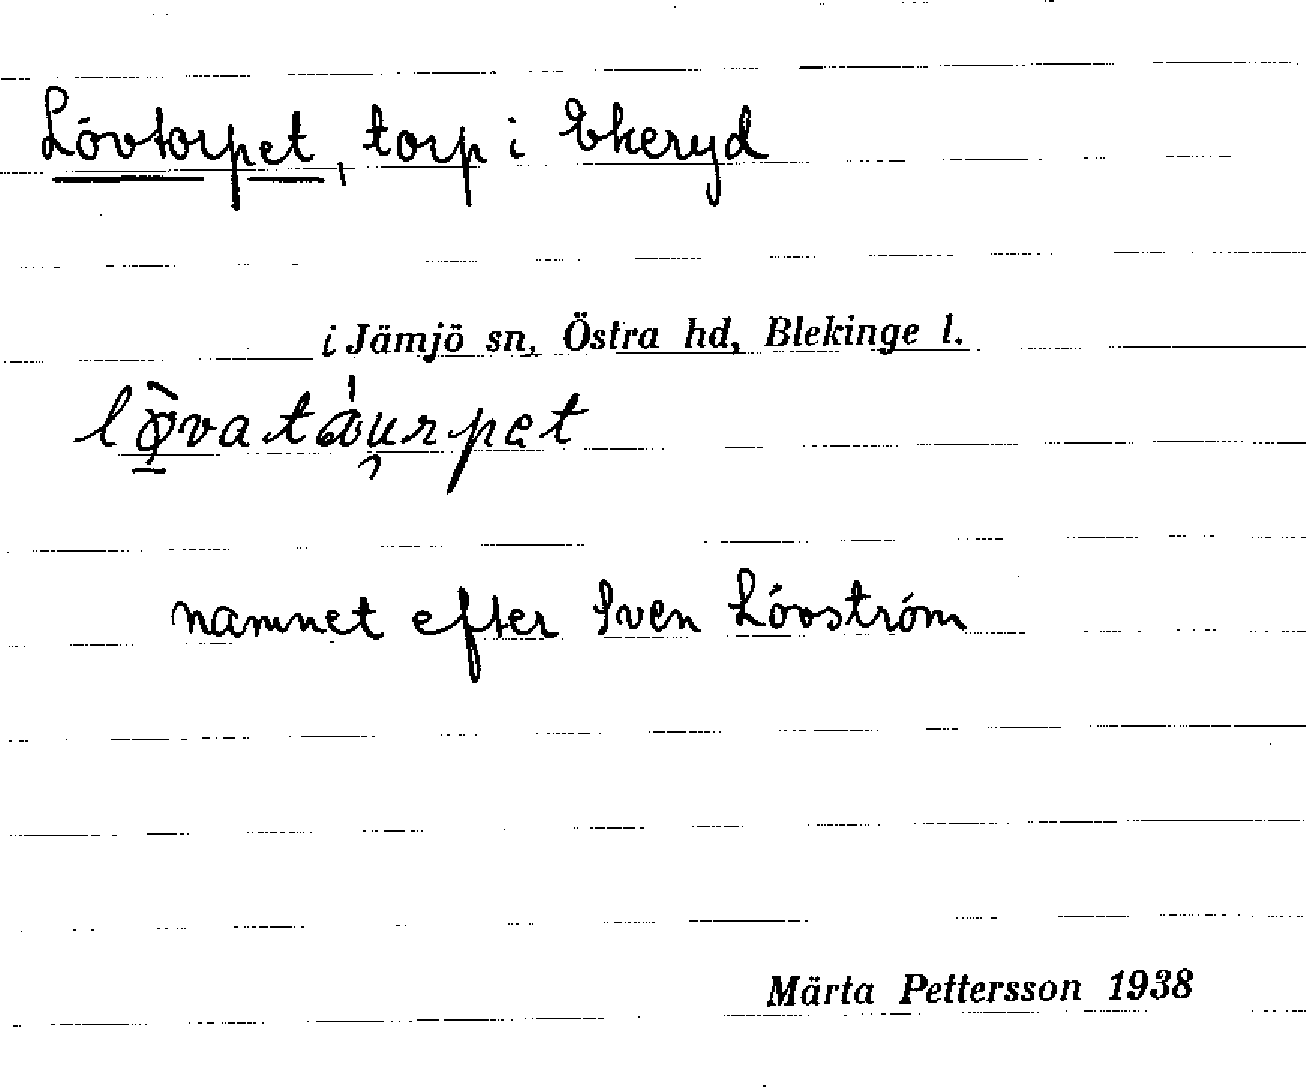 Lövtorpet, torp i Ekeryd
i Jämjö sn, Östra hd, Blekinge l.
lø̱̀vatáu̯rpet
namnet efter Sven Lövström
Märta Pettersson 1938